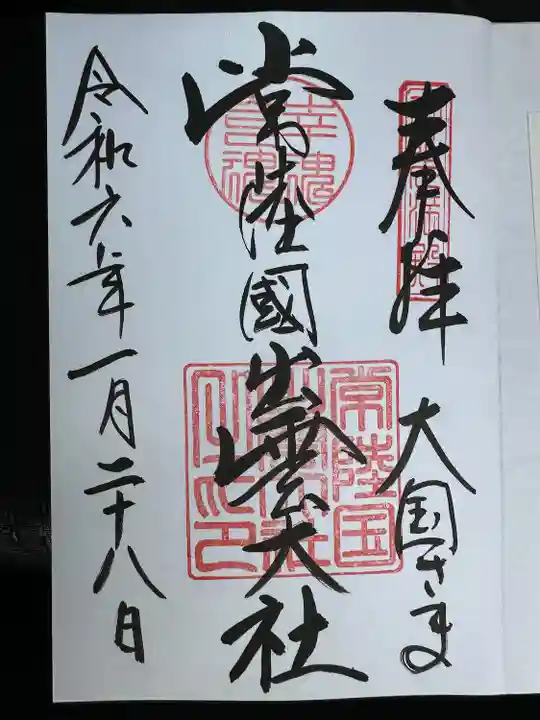 奉拝
大国さま
常陸國出雲大社
幸魂
常陸国
令和六年一月二十八日